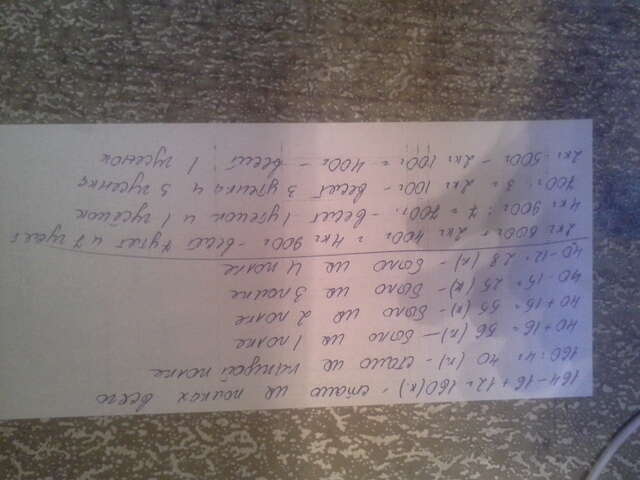 164-16+12=160(к) - стало на полках всего
160:4=40 (к) - стало на каждой полке
40+16=56 (к) - было на 1 полке
40+15=55 (к) - было на 2 полке
40-15=25 (к) - было на 3 полке
40-12=28 (к) - было на 4 полке
2кг 500г + 2кг 400г = 4кг 900г - весят 7 утят и 7 гусят
4кг 900г : 7 = 700г - весят 1 утенок и 1 гусенок
700г · 3 = 2кг 100г - весят 3 утенка и 3 гусенка
2кг 500г - 2кг 100г = 400г - весит 1 гусенок